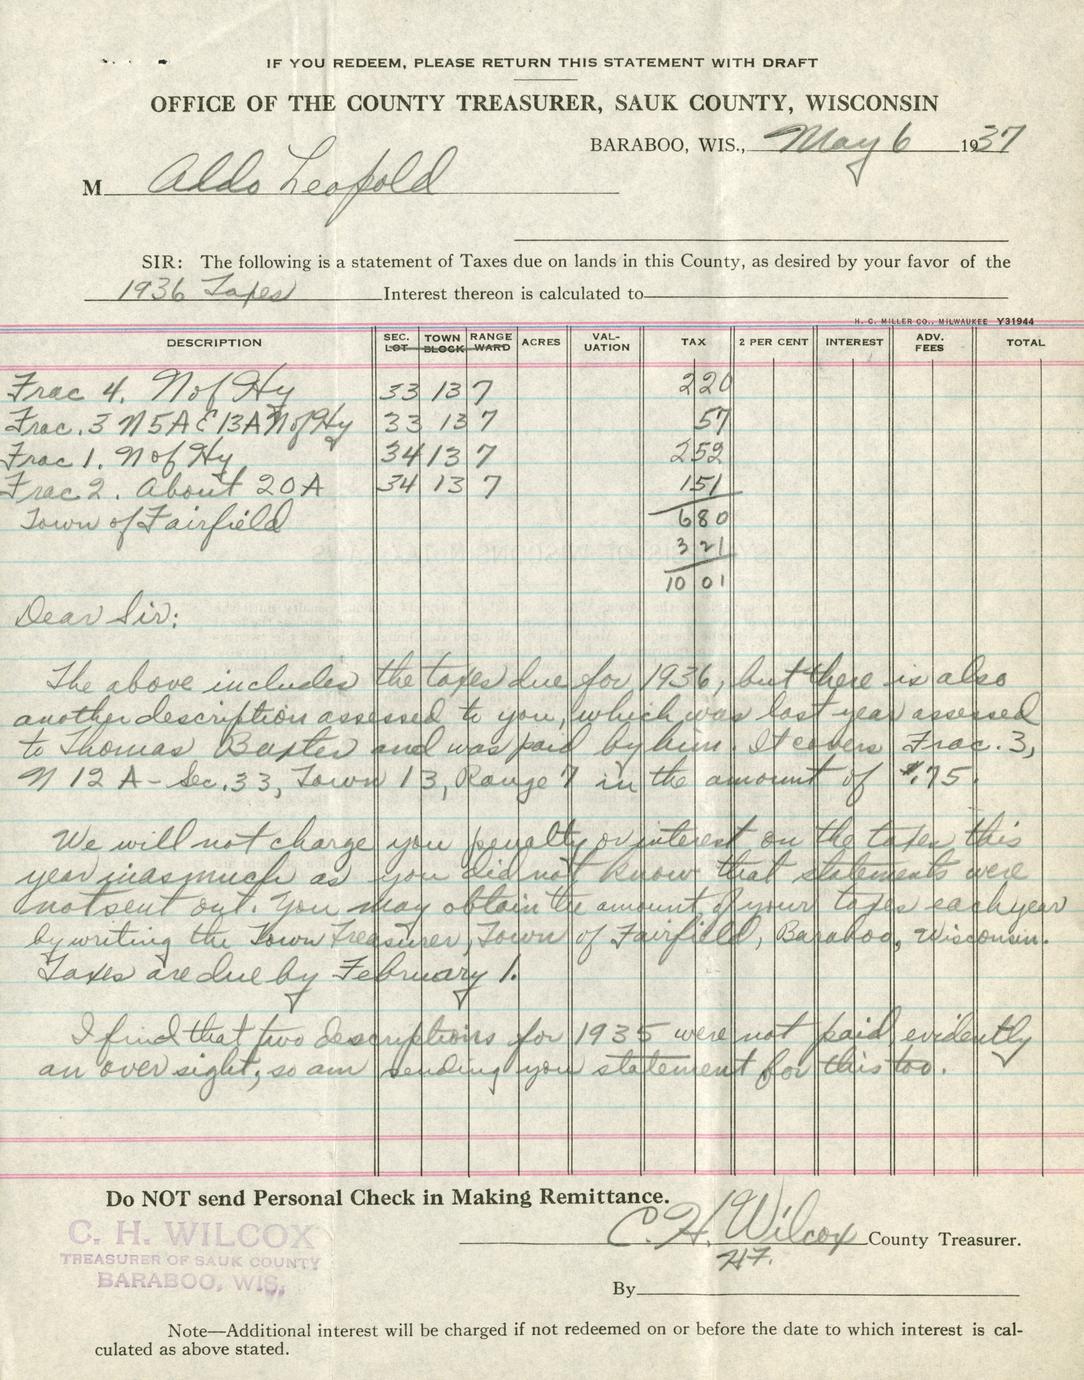 IF YOU REDEEM, PLEASE RETURN THIS STATEMENT WITH DRAFT
OFFICE OF THE COUNTY TREASURER, SAUK COUNTY, WISCONSIN
BARABOO, WIS., May 6 1937
M Aldo Leopold
SIR: The following is a statement of Taxes due on lands in this County, as desired by your favor of the
1936 Taxes Interest thereon is calculated to
H. C. MILLER CO., MILWAUKEE Y31944
DESCRIPTION SEC. LOT TOWN BLOCK RANGE WARD ACRES VAL-UATION TAX 2 PER CENT INTEREST ADV. FEES TOTAL
Frac 4. N of Hy 33 13 7 2 20
Frac. 3 N 5A E 13A N of Hy 33 13 7 57
Frac 1. N of Hy 34 13 7 2 52
Frac 2. About 20 A 34 13 7 1 51
Town of Fairfield 6 80
3 21
10 01
Dear Sir:
The above includes the taxes due for 1936, but there is also
another description assessed to you, which was last year assessed
to Thomas Baxter and was paid by him. It covers Frac. 3,
N 12 A - Sec. 33, Town 13, Range 7 in the amount of $.75.
We will not charge you penalty or interest on the taxes this
year inasmuch as you did not know that statements were
not sent out. You may obtain the amount of your taxes each year
by writing the Town Treasurer, Town of Fairfield, Baraboo, Wisconsin.
Taxes are due by February 1.
I find that two descriptions for 1935 were not paid evidently
an over sight, so am sending you statement for this too.
Do NOT send Personal Check in Making Remittance.
C. H. WILCOX
TREASURER OF SAUK COUNTY
BARABOO, WIS.
C. H. Wilcox County Treasurer.
By
Note—Additional interest will be charged if not redeemed on or before the date to which interest is cal-
culated as above stated.